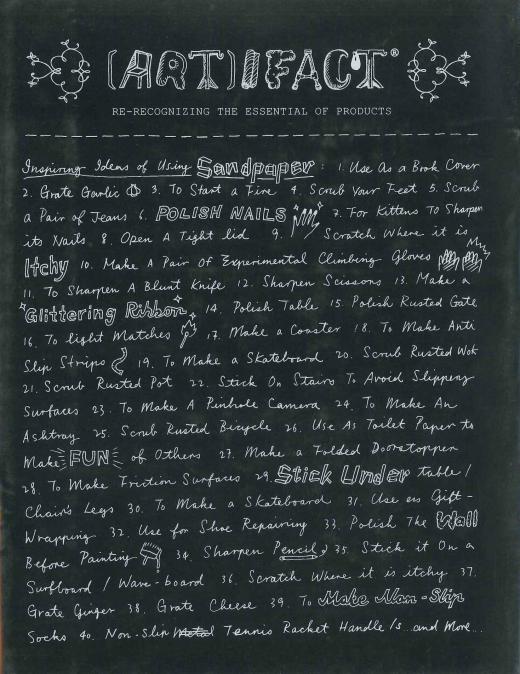 (ART)IFACT®
RE-RECOGNIZING THE ESSENTIAL OF PRODUCTS
Inspiring Ideas of Using Sandpaper : 1. Use As a Book Cover
2. Grate Garlic 3. To Start a Fire 4. Scrub Your Feet 5. Scrub
a Pair of Jeans 6. POLISH NAILS 7. For Kittens To Sharpen
its Nails 8. Open A Tight lid 9. Scratch Where it is
Itchy 10. Make A Pair Of Experimental Climbing Gloves
11. To Sharpen A Blunt Knife 12. Sharpen Scissors 13. Make a
Glittering Ribbon 14. Polish Table 15. Polish Rusted Gate
16. To light Matches 17. Make a Coaster 18. To Make Anti
Slip Strips 19. To Make a Skateboard 20. Scrub Rusted Wok
21. Scrub Rusted Pot 22. Stick On Stairs To Avoid Slippery
Surfaces 23. To Make A Pinhole Camera 24. To Make An
Ashtray 25. Scrub Rusted Bicycle 26. Use As Toilet Paper to
Make FUN of Others 27. Make a Folded Doorstopper
28. To Make Friction Surfaces 29. Stick Under table /
Chair's Legs 30. To Make a Skateboard 31. Use as Gift-
Wrapping 32. Use for Shoe Repairing 33. Polish The Wall
Before Painting 34. Sharpen Pencil 35. Stick it On a
Surfboard / Wave-board 36. Scratch Where it is itchy 37.
Grate Ginger 38. Grate Cheese 39. To Make Non-Slip
Socks 40. Non-Slip Metal Tennis Racket Handle /s...and More...